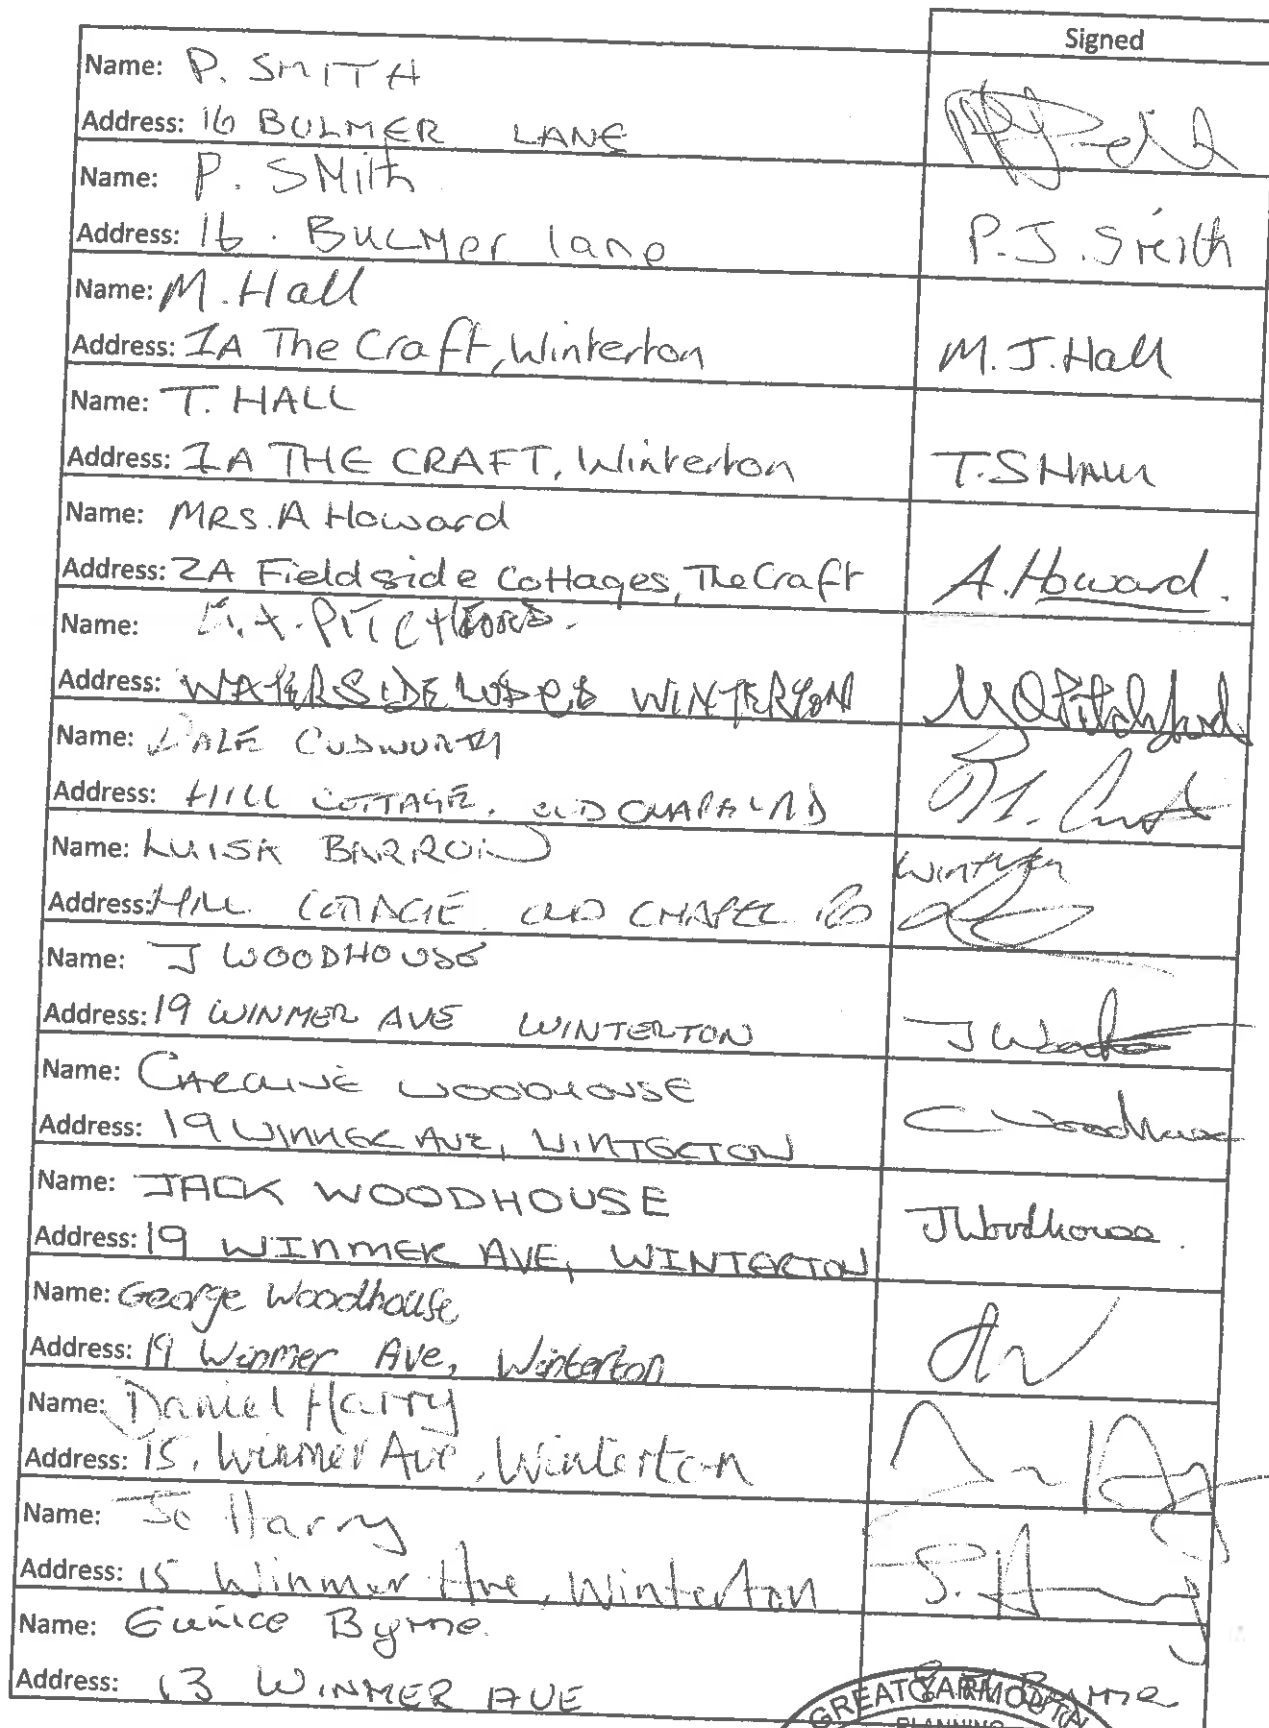 Signed
Name: P. SMITH
Address: 16 BULMER LANE
Name: P. SMith
Address: 16. BULMer lane
P.J. Smith
Name: M. Hall
Address: 1A The Craft, Winterton
M.J. Hall
Name: T. HALL
Address: 1A THE CRAFT, Winterton
T.S HALL
Name: MRS. A Howard
Address: 2A Fieldside Cottages, The Craft
A. Howard.
Name: PITCHFORD.
Address: WATERSIDE WINTERTON
Pitchford
Name: DALE CUDWORTH
Address: HILL COTTAGE. OLD CHAPEL RD
Name: LUISA BARRON
Address: HILL COTTAGE OLD CHAPEL RD
Winterton
Name: J WOODHOUSE
Address: 19 WINMER AVE WINTERTON
J
Name: CAROLINE WOODHOUSE
Address: 19 WINMER AVE, WINTERTON
C Woodhouse
Name: JACK WOODHOUSE
Address: 19 WINMER AVE, WINTERTON
JWoodhouse.
Name: George Woodhouse
Address: 19 Winmer Ave, Winterton
Name: Daniel Harry
Address: 15, Winmer Ave, Winterton
Name: Jo Harry
Address: 15 Winmer Ave, Winterton
Name: Eunice Byrne.
Address: 13 WINMER AVE
Byrne
GREAT YARMOUTH
PLANNING